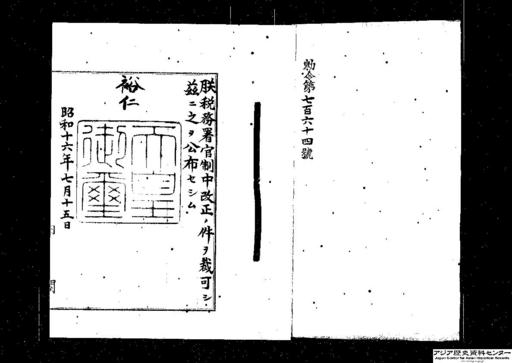 勅令第七百六十四號
朕税務署官制中改正ノ件ヲ裁可シ
茲ニ之ヲ公布セシム
裕仁
天皇御璽
昭和十六年七月十五日
内閣
アジア歴史資料センター
Japan Center for Asian Historical Records